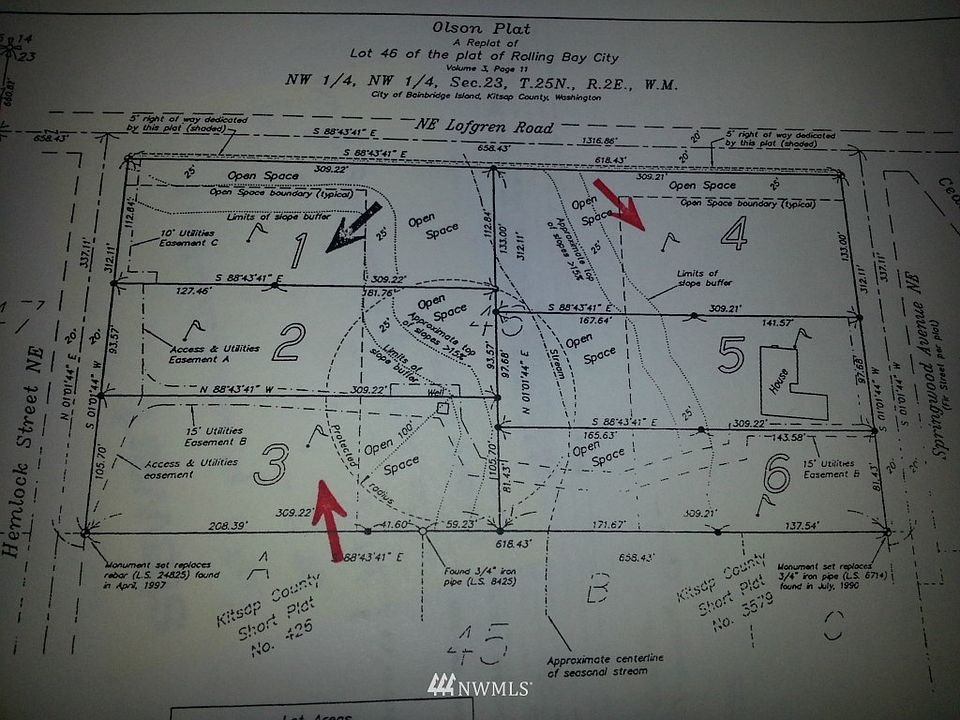 Olson Plat
A Replat of
Lot 46 of the plat of Rolling Bay City
Volume 3, Page 11
NW 1/4, NW 1/4, Sec.23, T.25N., R.2E., W.M.
City of Bainbridge Island, Kitsap County, Washington
14
23
660.61'
5' right of way dedicated
by this plat (shaded)
NE Lofgren Road
5' right of way dedicated
by this plat (shaded)
658.43'
S 88'43'41" E
658.43'
1316.86'
20'
20'
S 88'43'41" E
309.22'
618.43'
309.21'
25'
Open Space
Open Space boundary (typical)
Limits of slope buffer
Open Space
25'
Open Space boundary (typical)
112.84'
10' Utilities
Easement C
1
25'
Open
Space
112.84'
133.00'
312.11'
Open
Space
Approximate top
of slopes >15%
25'
4
133.00'
337.11'
312.11'
312.11'
337.11'
Limits of
slope buffer
S 88'43'41" E
309.22'
127.46'
181.76'
Open
Space
S 88'43'41" E
309.21'
167.64'
141.57'
93.57'
Access & Utilities
Easement A
2
25'
Approximate top
of slopes >15%
Limits of
slope buffer
93.57'
97.68'
N 01'01'44" E
Stream
Open
Space
5
House
97.68'
N 88'43'41" W
309.22'
Well
25'
S 88'43'41" E
309.22'
165.63'
143.58'
15' Utilities
Easement B
Access & Utilities
easement
3
Protected
100'
radius
Open
Space
105.70'
105.70'
81.43'
Open
Space
6
15' Utilities
Easement B
81.43'
Hemlock Street NE
N 01'01'44" E
S 01'01'44" W
20'
20'
S 01'01'44" W
S 01'01'44" W
20'
20'
Springwood Avenue NE
(Fir Street per plat)
309.22'
208.39'
41.60'
59.23'
171.67'
309.21'
137.54'
S 88'43'41" E
618.43'
658.43'
Monument set replaces
rebar (L.S. 24825) found
in April, 1997
A
Kitsap County
Short Plat
No. 426
Found 3/4" iron
pipe (L.S. 8425)
B
Kitsap County
Short Plat
No. 3579
Monument set replaces
3/4" iron pipe (L.S. 6714)
found in July, 1990
C
45
Approximate centerline
of seasonal stream
NWMLS
Lot Areas